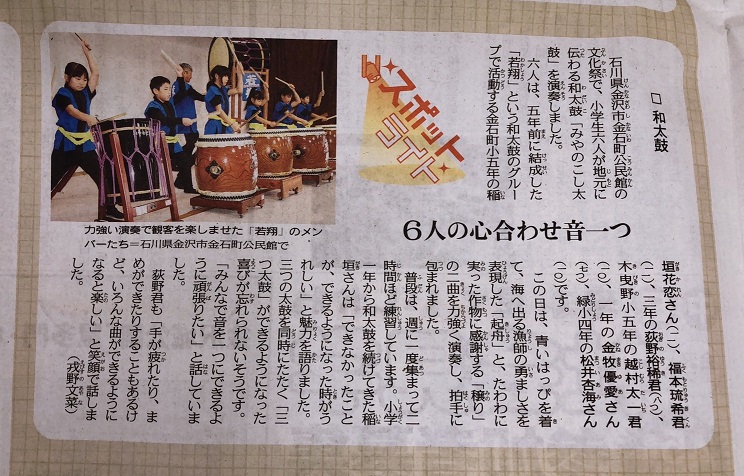 スポット
ライト
□ 和太鼓
石川県金沢市金石町公民館の
文化祭で、小学生六人が地元に
伝わる和太鼓「みやのこし太
鼓」を演奏しました。
六人は、五年前に結成した
「若翔」という和太鼓のグルー
プで活動する金石町小五年の稲
6人の心合わせ音一つ
垣花恋さん(一一)、福本琉希君
(一一)、三年の荻野裕稀君(八つ)、
木曳野小五年の越村太一君
(一一)、一年の金牧優愛さん
(七つ)、緑小四年の松井杏海さん
(一〇)です。
この日は、青いはっぴを着
て、海へ出る漁師の勇ましさを
表現した「起舟」と、たわわに
実った作物に感謝する「穣り」
の二曲を力強く演奏し、拍手に
包まれました。
普段は、週に一度集まって二
時間ほど練習しています。小学
一年から和太鼓を続けてきた稲
垣さんは「できなかったこと
が、できるようになった時がう
れしい」と魅力を語りました。
三つの太鼓を同時にたたく「三
つ太鼓」ができるようになった
喜びが忘れられないそうです。
「みんなで音を一つにできるよ
うに頑張りたい」と話していま
した。
荻野君も「手が疲れたり、ま
めができたりすることもあるけ
ど、いろんな曲ができるように
なると楽しい」と笑顔で話しま
した。
(戎野文菜)
力強い演奏で観客を楽しませた「若翔」のメン
バーたち＝石川県金沢市金石町公民館で